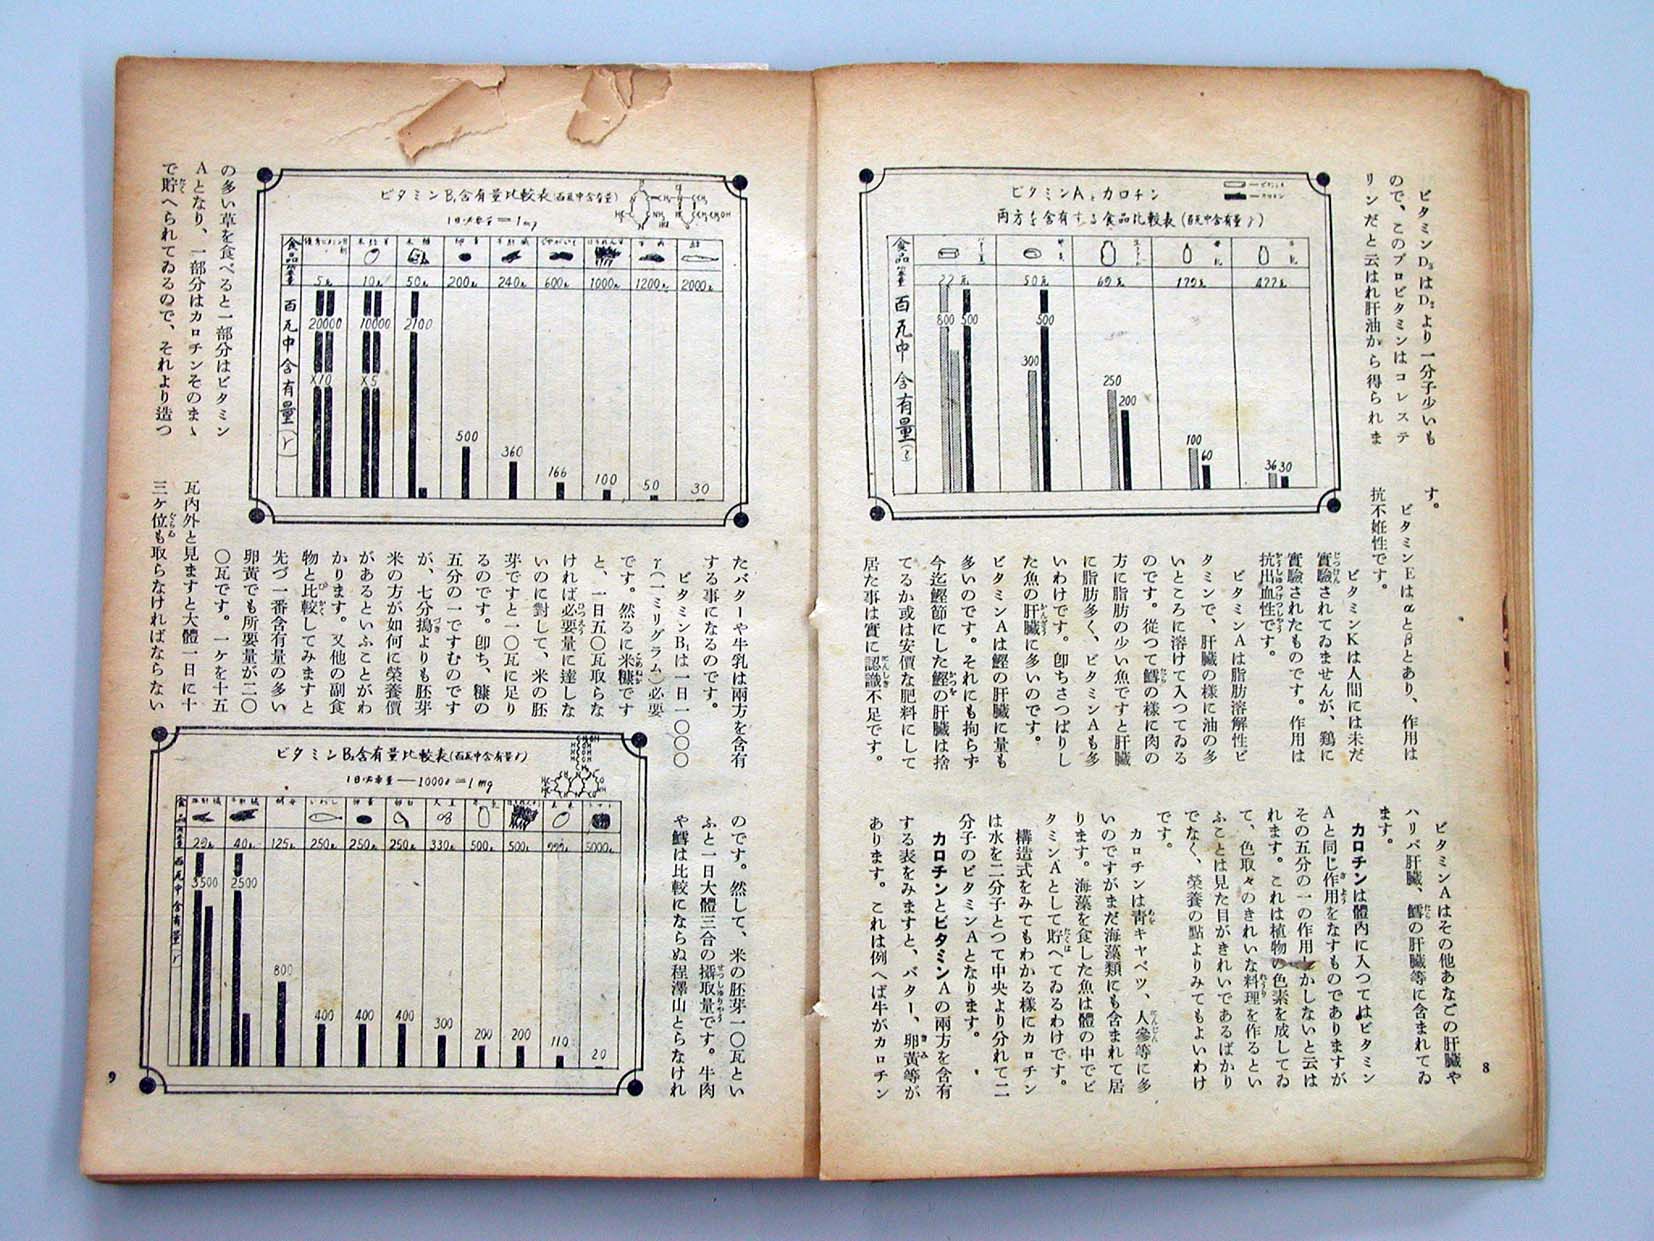 ビタミンD₃はD₂より一分子少いも
ので、このプロビタミンはコレステ
リンだと云はれ肝油から得られま
す。
ビタミンEはαとβとあり、作用は
抗不姙性です。
ビタミンKは人間には未だ
實驗されてゐませんが、鶏に
實驗されたものです。作用は
抗出血性です。
ビタミンAは脂肪溶解性ビ
タミンで、肝臓の様に油の多
いところに溶けて入つてゐる
のです。從つて鱈の様に肉の
方に脂肪の少い魚ですと肝臓
に脂肪多く、ビタミンAも多
いわけです。卽ちさつぱりし
た魚の肝臓に多いのです。
ビタミンAは鰹の肝臓に量も
多いのです。それにも拘らず
今迄鰹節にした鰹の肝臓は捨
てるか或は安價な肥料にして
居た事は實に認識不足です。
ビタミンAはその他あなごの肝臓や
ハリバ肝臓、鱈の肝臓等に含まれてゐ
ます。
カロチンは體内に入つてはビタミン
Aと同じ作用をなすものでありますが
その五分の一の作用しかしないと云は
れます。これは植物の色素を成してゐ
て、色取々のきれいな料理を作るとい
ふことは見た目がきれいであるばかり
でなく、榮養の點よりみてもよいわけ
です。
カロチンは靑キヤベツ、人參等に多
いのですがまだ海藻類にも含まれて居
ります。海藻を食した魚は體の中でビ
タミンAとして貯へてゐるわけです。
構造式をみてもわかる様にカロチン
は水を二分子とつて中央より分れて二
分子のビタミンAとなります。
カロチンとビタミンAの兩方を含有
する表をみますと、バター、卵黄等が
あります。これは例へば牛がカロチン
8
ビタミンAとカロチン
両方を含有する食品比較表(百瓦中含有量γ)
食品
百瓦中含有量(γ)
22瓦 50瓦 60瓦 170瓦 422瓦
800 500
300 500
250 200
100 60
36 30
の多い草を食べると一部分はビタミン
Aとなり、一部分はカロチンそのまゝ
で貯へられてゐるので、それより造つ
たバターや牛乳は兩方を含有
する事になるのです。
ビタミンB₁は一日一〇〇〇
γ(一ミリグラム)必要
です。然るに米糠です
と、一日五〇瓦取らな
ければ必要量に達しな
いのに對して、米の胚
芽ですと一〇瓦に足り
るのです。卽ち、糠の
五分の一ですむのです
が、七分搗よりも胚芽
米の方が如何に榮養價
があるといふことがわ
かります。又他の副食
物と比較してみますと
先づ一番含有量の多い
卵黄でも所要量が二〇
〇瓦です。一ケを十五
瓦內外と見ますと大體一日に十
三ケ位も取らなければならない
のです。然して、米の胚芽一〇瓦とい
ふと一日大體三合の攝取量です。牛肉
や鱈は比較にならぬ程澤山とらなけれ
9
ビタミンB₁含有量比較表(百瓦中含有量)
1日必要量=1mg
食品
百瓦中含有量(γ)
5瓦 10瓦 50瓦 200瓦 240瓦 600瓦 1000瓦 1200瓦 2000瓦
20000 10000 2100
×10 ×5
500 360 166 100 50 30
ビタミンB₂含有量比較表(百瓦中含有量γ)
1日必要量—1000γ=1mg
百瓦中含有量(γ)
29瓦 40瓦 125瓦 250瓦 250瓦 250瓦 330瓦 500瓦 500瓦 5000瓦
3500 2500 800 400 400 400 300 200 200 110 20